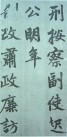 刑按察副使迟
公明年
改肃政廉访